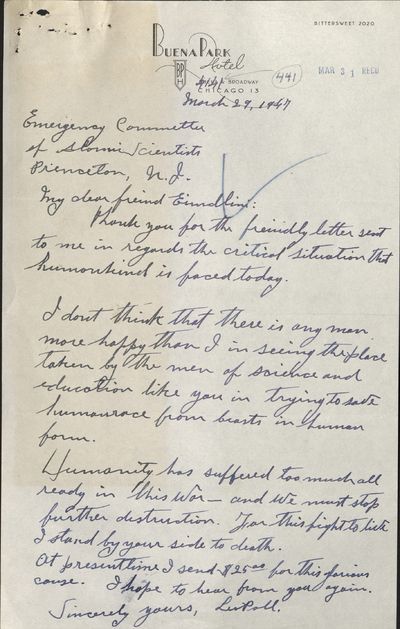 BITTERSWEET 2020
BUENA PARK
Hotel
BPH
BROADWAY
CHICAGO 13
441
MAR 31 RECD
March 29, 1947
Emergency Committee
of Atomic Scientists
Princeton, N.J.
My dear freind Einndlin:
Thank you for the freindly letter sent
to me in regards the critical situation that
humankind is faced today.
I dont think that there is any man
more happy than I in seeing the place
taken by the men of science and
education like you in trying to save
humanrace from beasts in human
form.
Humanity has suffered too much all
ready in this war – and we must stop
further distruction. For this fight to live
I stand by your side to death.
At present time I send $25.00 for this glorious
cause. I hope to hear from you again.
Sincerely yours,